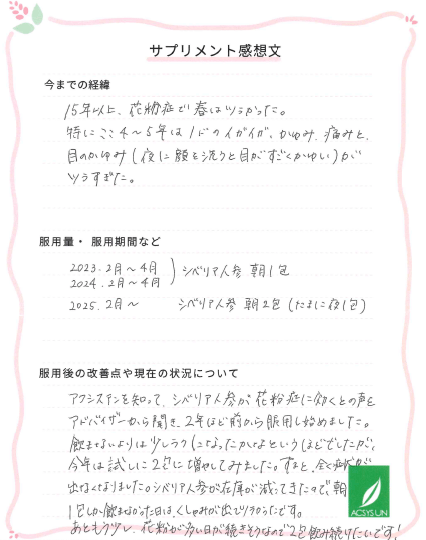 サプリメント感想文
今までの経緯
15年以上、花粉症で春はツラかった。
特にここ4〜5年はノドのイガイガ、かゆみ、痛みと、
目のかゆみ(夜に顔を洗うと目がすごくかゆい)が
ツラすぎた。
服用量・服用期間など
2023.2月〜4月
2024.2月〜4月
シベリア人参 朝1包
2025.2月〜 シベリア人参 朝2包(たまに夜1包)
服用後の改善点や現在の状況について
アクシスアンを知って、シベリア人参が花粉症に効くとの声を
アドバイザーから聞き、2年ほど前から服用し始めました。
飲まないよりは少しラクになったかなというほどでしたが、
今年は試しに2包に増やしてみました。すると、全く症状が
出なくなりました。シベリア人参が在庫が減ってきたので、朝
1包しか飲まなかった日は、くしゃみが出てツラかったです。
あともう少し、花粉が多い日が続きそうなので2包飲み続けたいです!
ACSYSUN